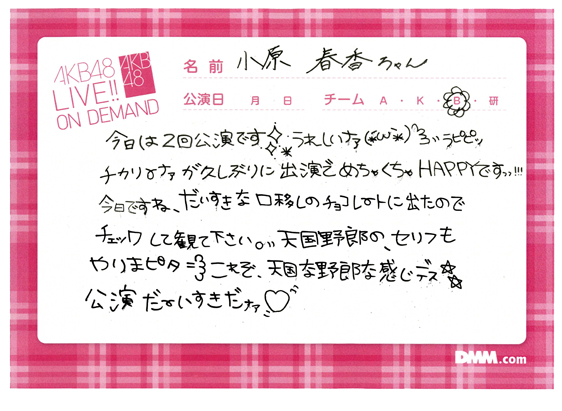 AKB48
LIVE!!
ON DEMAND
AKB
48
名前 小原 春香ちゃん
公演日 月 日 チーム A・K・B・研
今日は2回公演です うれしいナァ(*ω*) ラピピッ
チカリナァが久しぶりに出演でめちゃくちゃHAPPYですッ!!!
今日ですね、だいすきな口移しのチョコレートに出たので
チェックして観て下さい。天国野郎の、セリフも
やりまピタ これぞ、天国な野郎な感じデス☆☆
公演だーいすきだァ♡
DMM.com